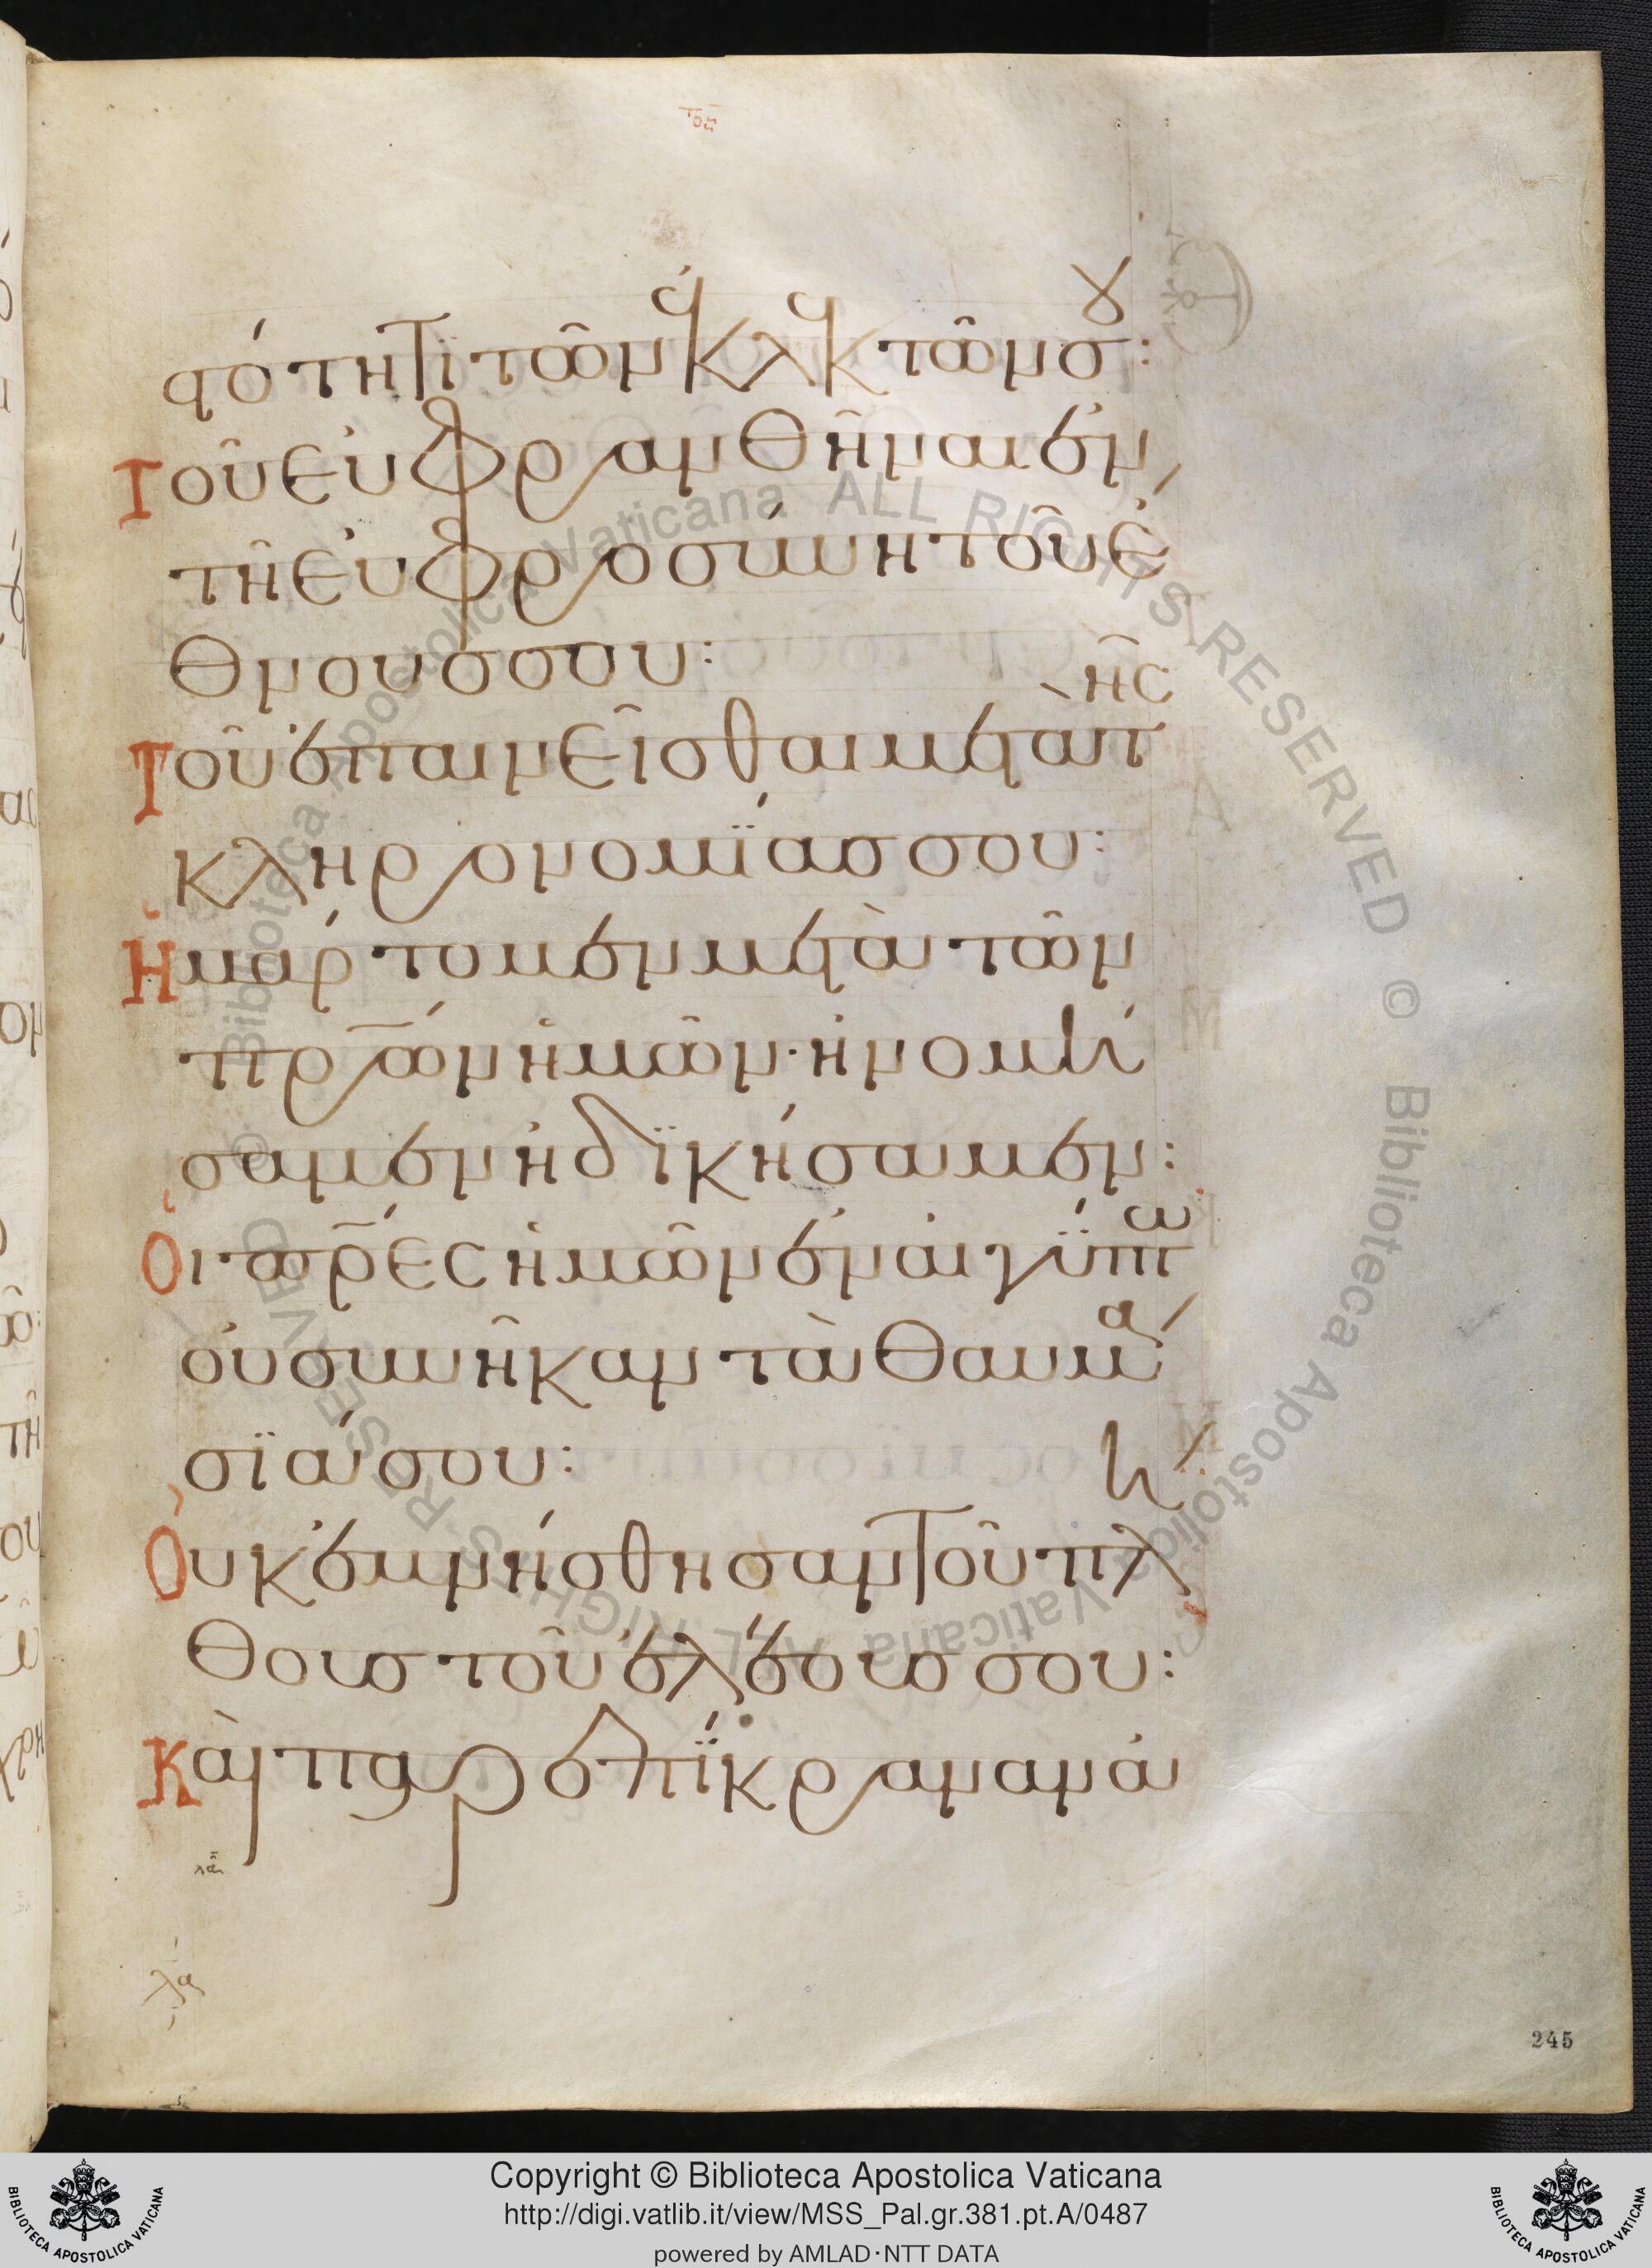 στότητι τῶν ἐκλεκτῶν σου:
Τοῦ εὐφρανθῆναι ἐν
τῇ εὐφροσύνη τοῦ ἔ
θνουσ σου:
Τοῦ ἐπαινεῖσθαι μετὰ τῆς
κληρονομΐας σου:
Ἡμάρτομεν μετὰ τῶν
πρ̅ων ἡμῶν· ἠνομή
σαμεν ἠδϊκήσαμεν:
Οἱ πρ̅ες ἡμῶν ἐν αἰγύπτω
οὐ συνῆκαν τὰ θαυμά
σϊά σου:
Οὐκ ἐμνήσθησαν τοῦ πλή
θους τοῦ ἐλέους σου:
Καὶ παρεπΐκραναν ἀ
λα
245
Copyright © Biblioteca Apostolica Vaticana
http://digi.vatlib.it/view/MSS_Pal.gr.381.pt.A/0487
powered by AMLAD·NTT DATA
Biblioteca Apostolica Vaticana ALL RIGHTS RESERVED ©
BIBLIOTECA APOSTOLICA VATICANA
BIBLIOTECA APOSTOLICA VATICANA